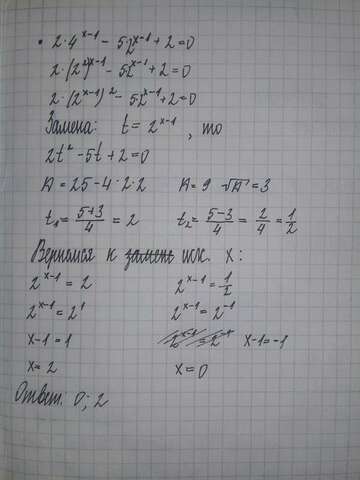 • 2·4^(x-1) - 5·2^(x-1) + 2 = 0
2·(2²)^(x-1) - 5·2^(x-1) + 2 = 0
2·(2^(x-1))² - 5·2^(x-1) + 2 = 0
Замена: t = 2^(x-1), то
2t² - 5t + 2 = 0
Д = 25 - 4·2·2 Д = 9 √Д = 3
t₁ = (5+3)/4 = 2 t₂ = (5-3)/4 = 2/4 = 1/2
Вернемся к исх. x:
2^(x-1) = 2 2^(x-1) = 1/2
2^(x-1) = 2¹ 2^(x-1) = 2^(-1)
x-1 = 1 x-1 = -1
x = 2 x = 0
Ответ: 0; 2